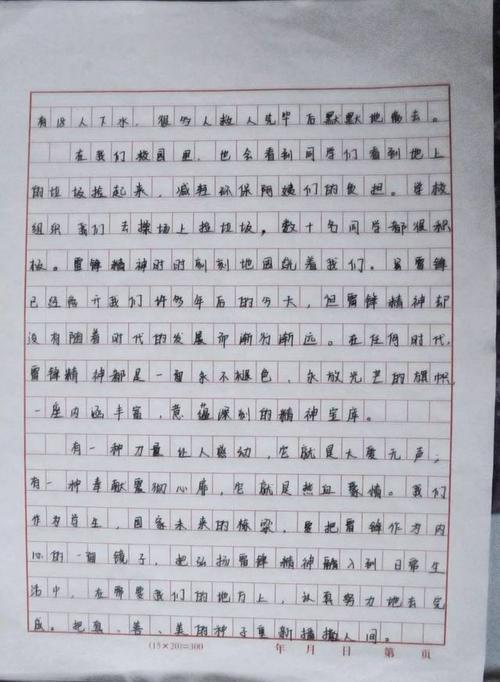 有18人下水，很多人救人完毕后默默地离去。
在我们校园里，也会看到同学们看到地上
的垃圾捡起来，减轻环保阿姨们的负担。学校
组织我们去操场上捡垃圾，数十名同学都很积
极。雷锋精神时时刻刻地围绕着我们。虽雷锋
已经离开我们许多年后的今天，但雷锋精神却
没有随着时代的发展而渐行渐远。在任何时代，
雷锋精神都是一面永不褪色，永放光芒的旗帜，
一座内涵丰富，意蕴深刻的精神宝库。
有一种力量让人感动，它就是大爱无声；
有一种奉献震彻心扉，它就是热血豪情。我们
作为学生，国家未来的栋梁，要把雷锋作为内
心的一面镜子，把弘扬雷锋精神融入到日常生
活中，在需要我们的地方上，认真努力地去完
成。把真、善、美的种子重新播撒人间。
(15×20)=300 年 月 日 第 页